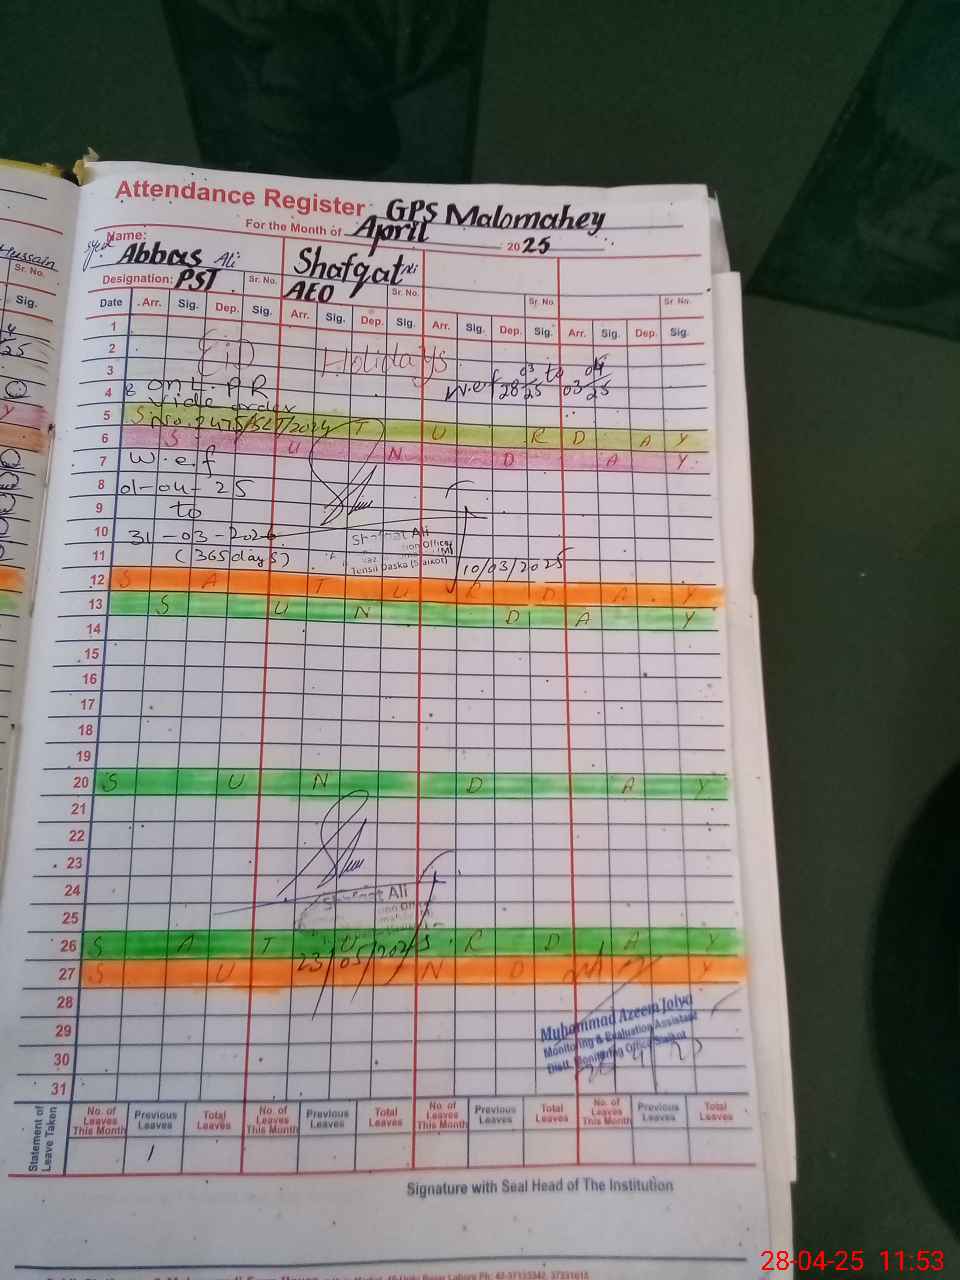 Hussain
Sr. No.
Sig.
Attendance Register GPS Malomahey
For the Month of April 2025
Name: Syed Abbas Ali Shafqat Ali
Designation: PST Sr. No. AEO Sr. No. Sr. No. Sr. No.
Date Arr. Sig. Dep. Sig. Arr. Sig. Dep. Sig. Arr. Sig. Dep. Sig. Arr. Sig. Dep. Sig.
1
2 EiD Holidays
3
4 on L.PR w.e.f 28/03/25 to 03/04/25
vide order
5 S T U R D A Y
No. 2475/SLT/2024
6 S U N D A Y
7 w.e.f
8 01-04-25
9 to
10 31-03-2026 Shafqat Ali
11 (365 days) 10/03/2025
Tehsil Daska (Sialkot)
12 S A T U R D A Y
13 S U N D A Y
14
15
16
17
18
19
20 S U N D A Y
21
22
23
24 Shafqat Ali
25
26 S A T U S R D A Y
27 S U N D A Y
23/05/202
28
Muhammad Azeem Jolya
29 Monitoring & Evaluation Assistant
Distt. Monitoring Office Sialkot
30
31
Statement of Leave Taken
No. of Leaves This Month Previous Leaves Total Leaves No. of Leaves This Month Previous Leaves Total Leaves No. of Leaves This Month Previous Leaves Total Leaves No. of Leaves This Month Previous Leaves Total Leaves
1
Signature with Seal Head of The Institution
28-04-25 11:53